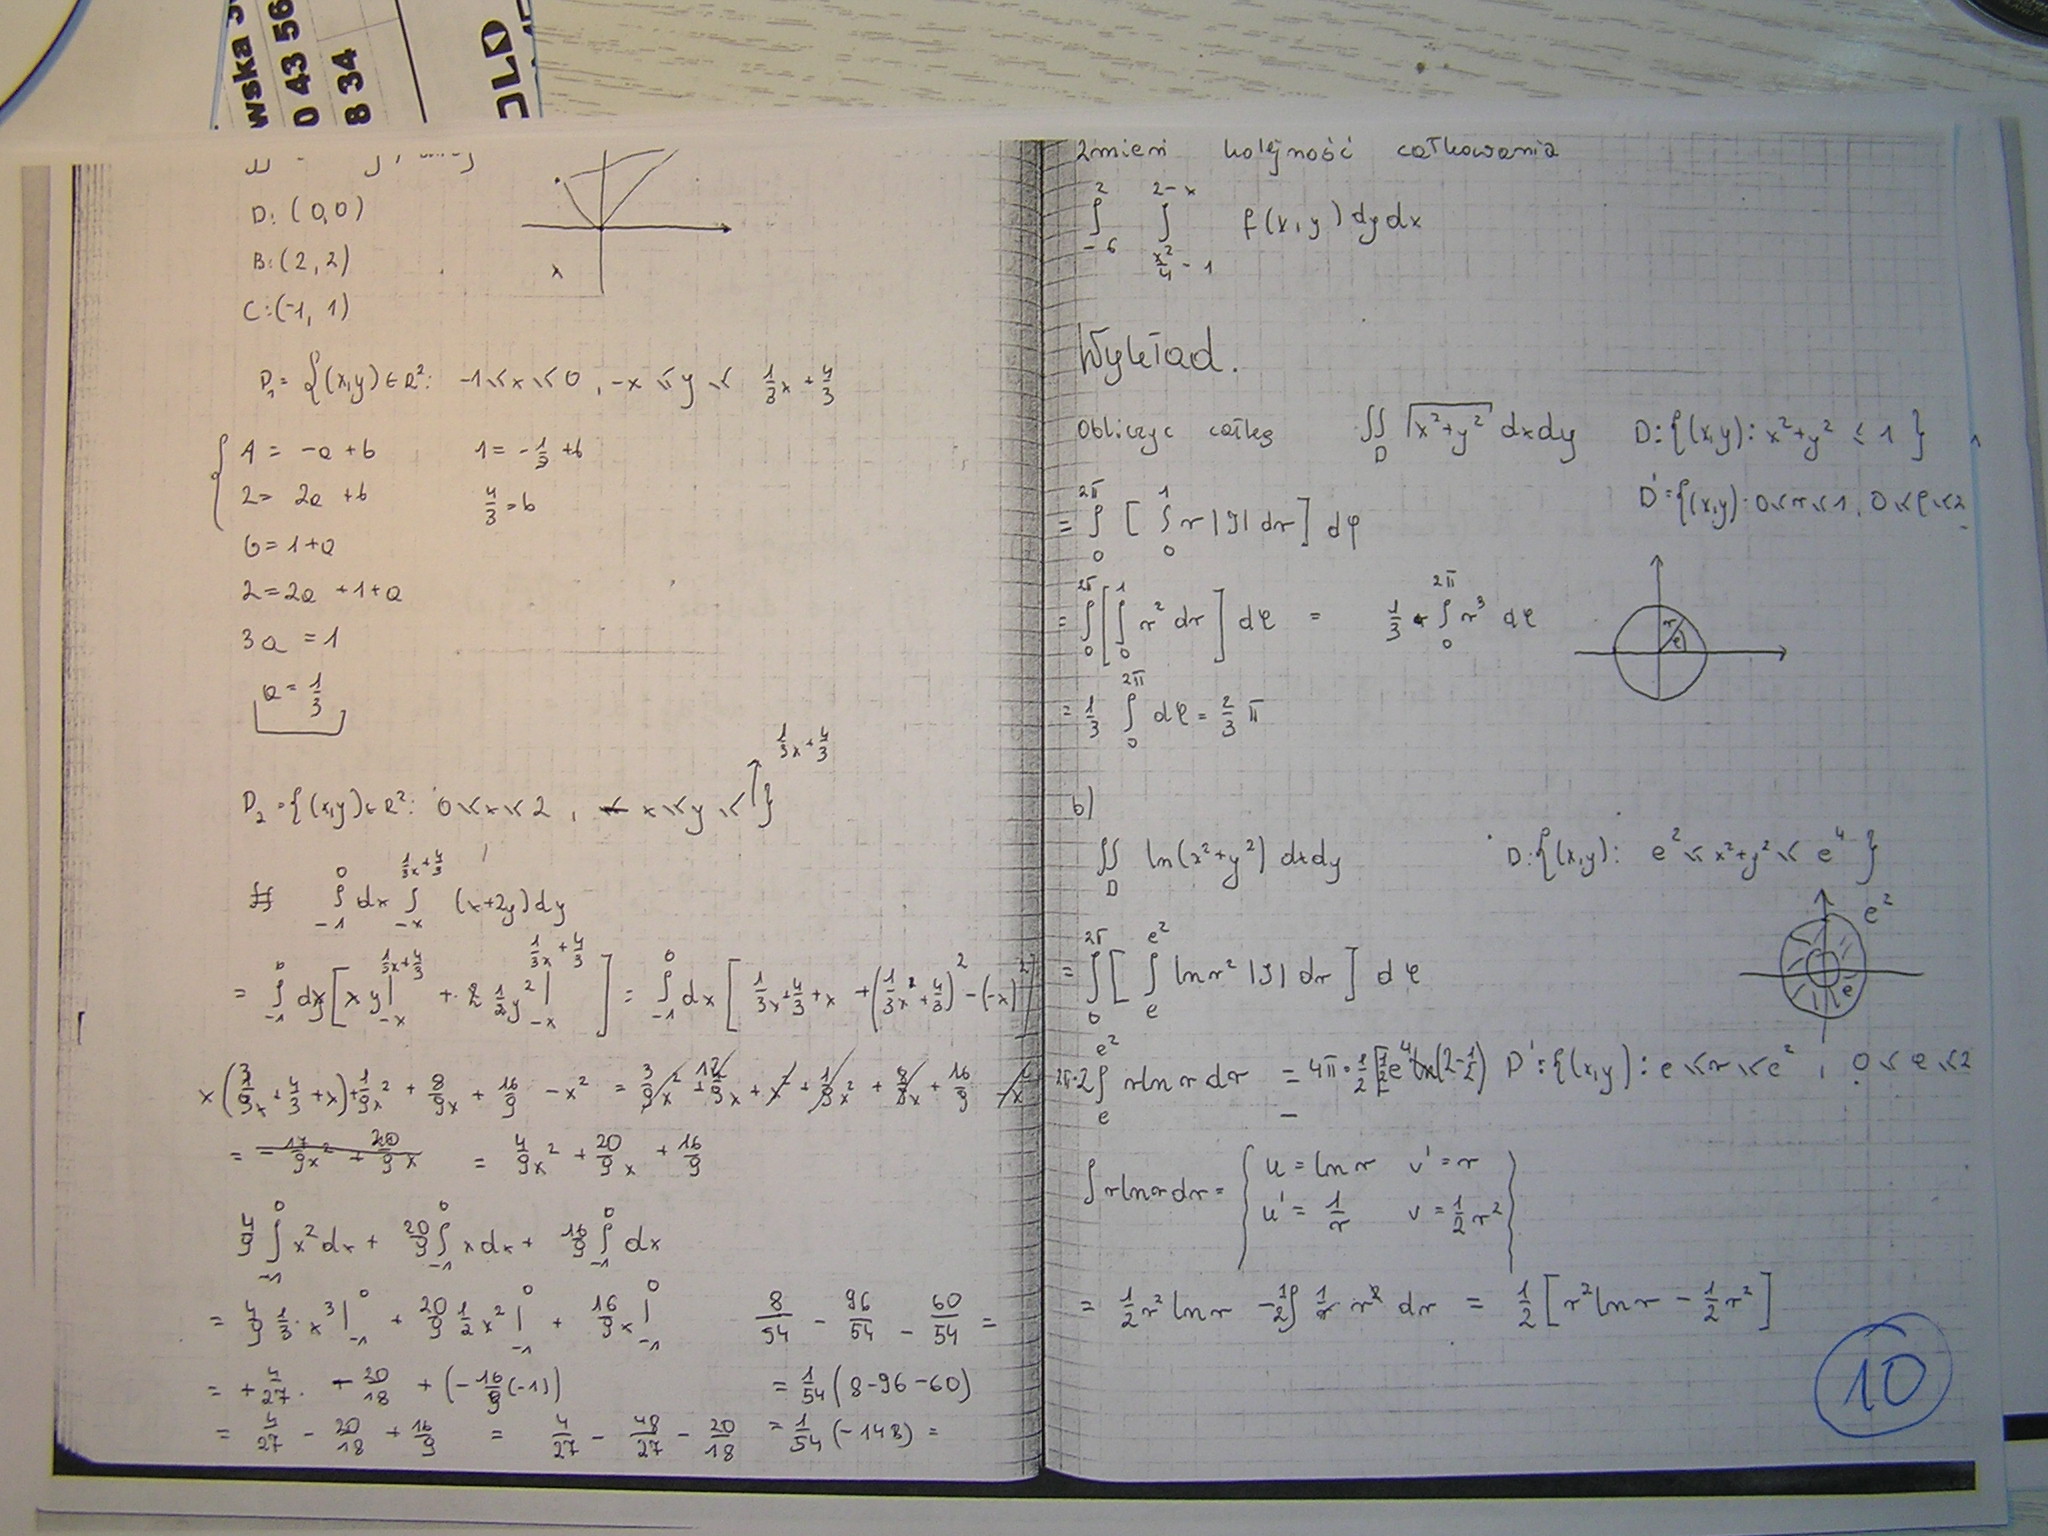 wska
0 43 56
8 34
D: (0,0)
B: (2,2)
C: (-1, 1)
D₁ = {(x,y) ∈ R²: -1 ≤ x ≤ 0, -x ≤ y ≤ 1/3 x + 4/3
1 = -a + b    1 = -1/3 + b
2 = 2a + b    4/3 = b
b = 1 + a
2 = 2a + 1 + a
3a = 1
a = 1/3
1/3 x + 4/3
D₂ = {(x,y) ∈ R²: 0 ≤ x ≤ 2, x ≤ y ≤ }
∫₋₁⁰ dx ∫₋ₓ^(1/3 x + 4/3) (x+2y) dy
= ∫₋₁⁰ dx [xy |₋ₓ^(1/3 x + 4/3) + 2 1/2 y² |₋ₓ^(1/3 x + 4/3)] = ∫₋₁⁰ dx [1/3 x + 4/3 + x + (1/3 x² + 4/3)² - (-x)²]
x(3/9 x + 4/3 + x) + 1/9 x² + 8/9 x + 16/9 - x² = 3/9 x² + 12/9 x + x² + 1/9 x² + 8/9 x + 16/9 - x²
= -17/9 x² + 20/9 x = 4/9 x² + 20/9 x + 16/9
4/9 ∫₋₁⁰ x² dx + 20/9 ∫₋₁⁰ x dx + 16/9 ∫₋₁⁰ dx
= 4/9 1/3 · x³ |₋₁⁰ + 20/9 1/2 x² |₋₁⁰ + 16/9 x |₋₁⁰    8/54 - 96/54 - 60/54 =
= + 4/27 · - 20/18 + (-16/9 (-1))    = 1/54 (8 - 96 - 60)
= 4/27 - 20/18 + 16/9 = 4/27 - 48/27 - 20/18 = 1/54 (-148) =
Zmień kolejność całkowania
∫₋₆² ∫_(x²/4 - 1)^(2-x) f(x,y) dy dx
Wykład.
Obliczyc całkę ∬_D √(x²+y²) dxdy    D: {(x,y): x²+y² ≤ 1}
D' = {(x,y): 0 ≤ r ≤ 1, 0 ≤ φ ≤ 2
= ∫₀^2π [∫₀¹ r |J| dr] dφ
= ∫₀^2π [∫₀¹ r² dr] dφ = 1/3 · ∫₀^2π r³ dφ
r
φ
= 1/3 ∫₀^2π dφ = 2/3 π
b)
∬_D ln(x²+y²) dxdy    D: {(x,y): e² ≤ x²+y² ≤ e⁴}
e²
e
= ∫₀^2π [∫ₑ^e² ln r² |J| dr] dφ
2π·2 ∫ₑ^e² r ln r dr = 4π · 1/2 [1/2 e⁴ (2 - 1/2)    D': {(x,y): e ≤ r ≤ e², 0 ≤ φ ≤ 2
∫ r ln r dr = { u = ln r    v' = r
u' = 1/r    v = 1/2 r² }
= 1/2 r² ln r - 1/2 ∫ 1/r r² dr = 1/2 [r² ln r - 1/2 r²]
10